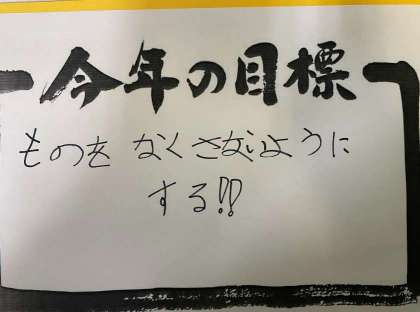 今年の目標
ものを なくさないように
する!!